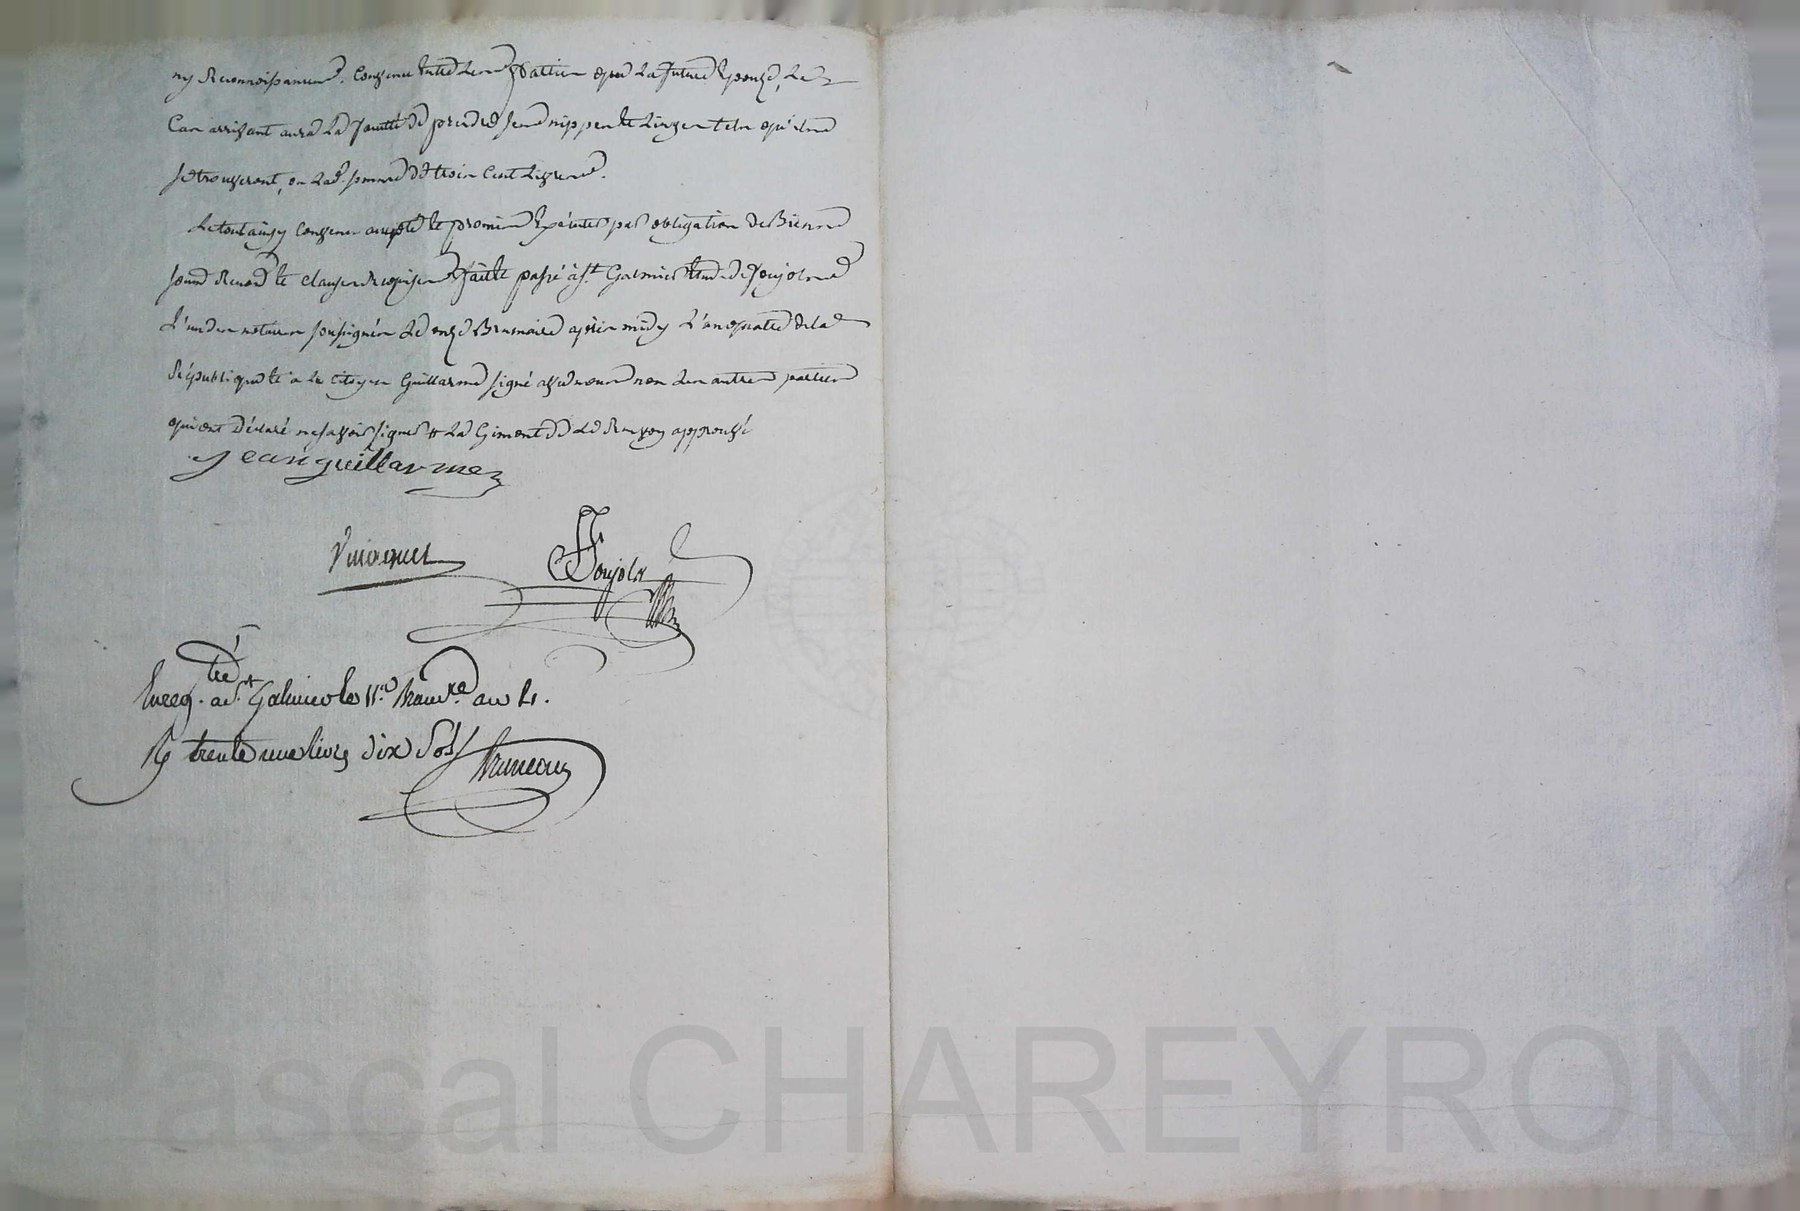 ny Reconnoissance. Convenu entre les parties que la future Epouse, le
Cas arrivant aura la faculté de prendre ses nippes et linges tels qu'ils
se trouveront, ou lad. somme de trois Cent livres.
Le tout ainsy Convenu accepté et promis Exécuter par obligation de Biens
soumis Renonc et clauses requises faitte passé à st. Galmier Etude de Poujols
L'un des notaires soussignés Le onze Brumaire après midy L'an quatre de la
République et a le Citoyen Guillarme signé avec nous non les autres parties
qui ont déclaré ne savoir signer La approuvé
jean guillarme
Poujols
Enreg. à St Galmier le 11 Brumre an 4.
R trente une livres dix sols Bruneau
Pascal CHAREYRON